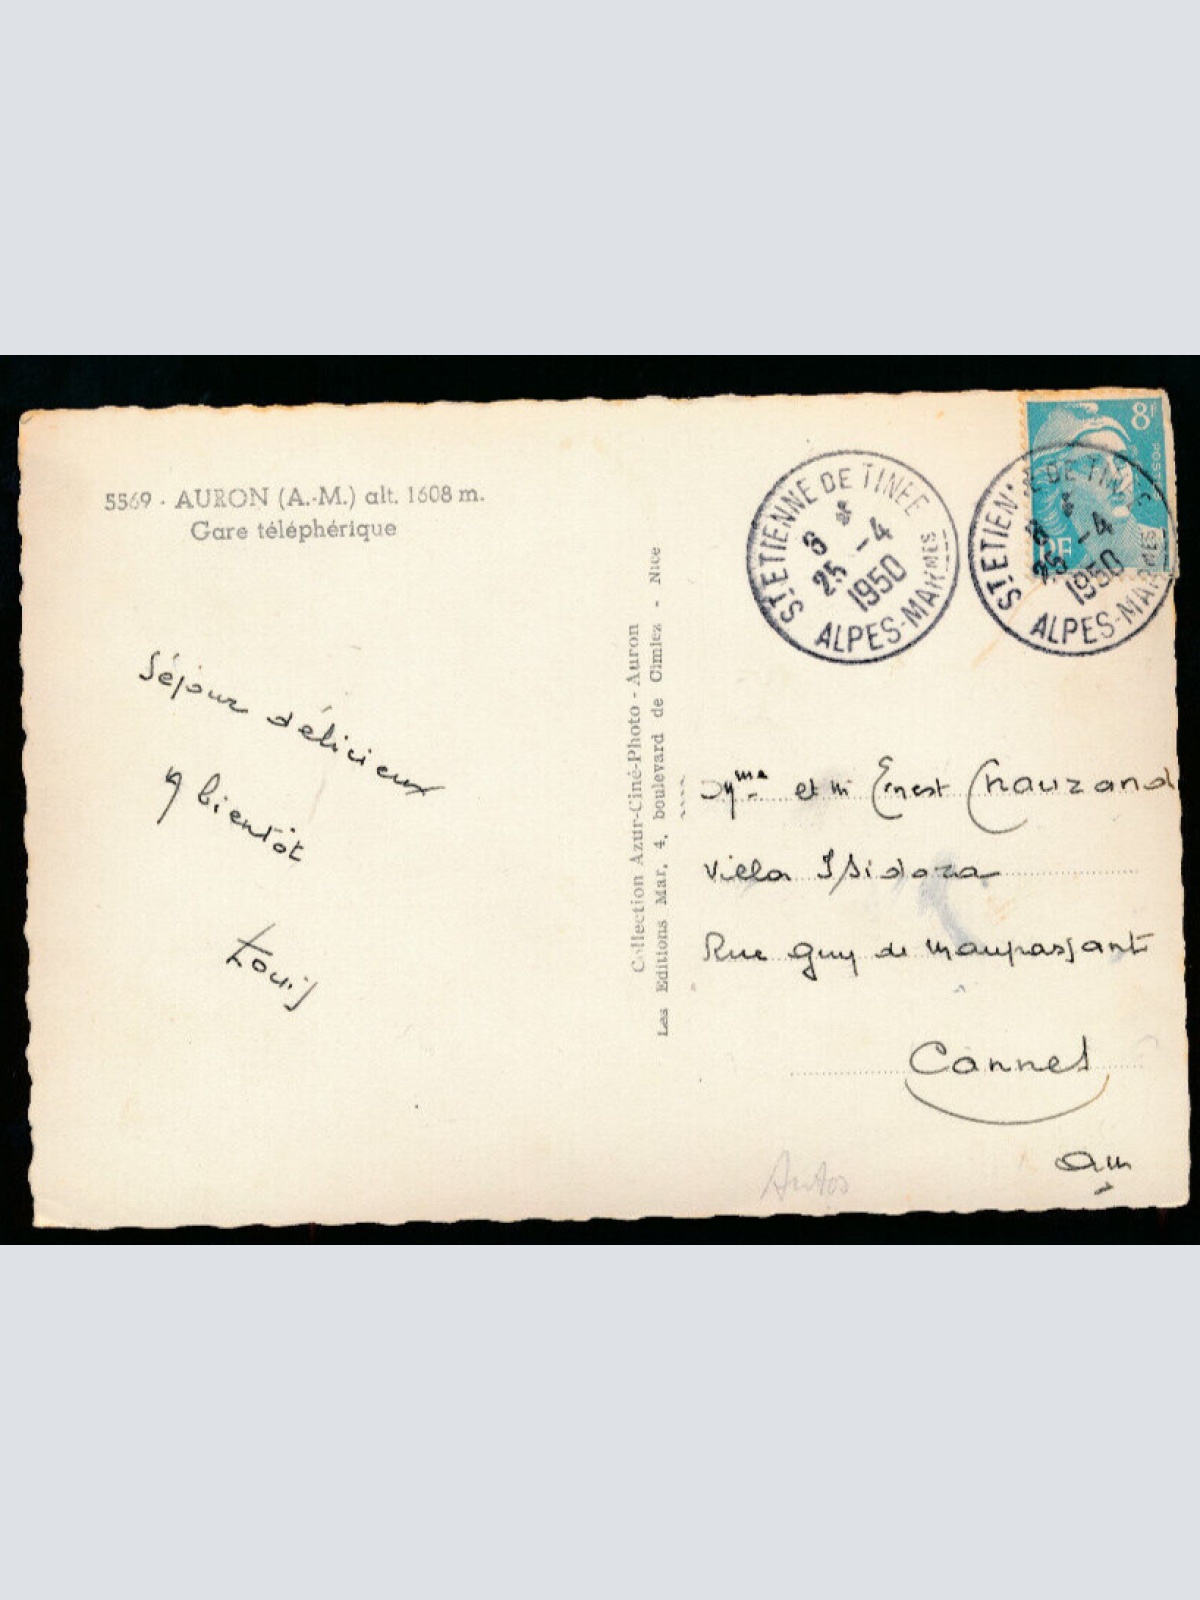 5569 - AURON (A.-M.) alt. 1608 m.
Gare téléphérique
Séjour délicieux
A bientôt
Louis
Collection Azur-Ciné-Photo - Auron
Les Editions Mar, 4, boulevard de Cimiez - Nice
ST ETIENNE DE TINEE
8 H
25 -4
1950
ALPES-MARMES
ST ETIENNE DE TINEE
8 H
25 -4
1950
ALPES-MARMES
8F
POSTES
RF
Mme et M Ernest Chauzand
Villa Isidora
Rue Guy de Maupassant
Cannes
AM
Autos